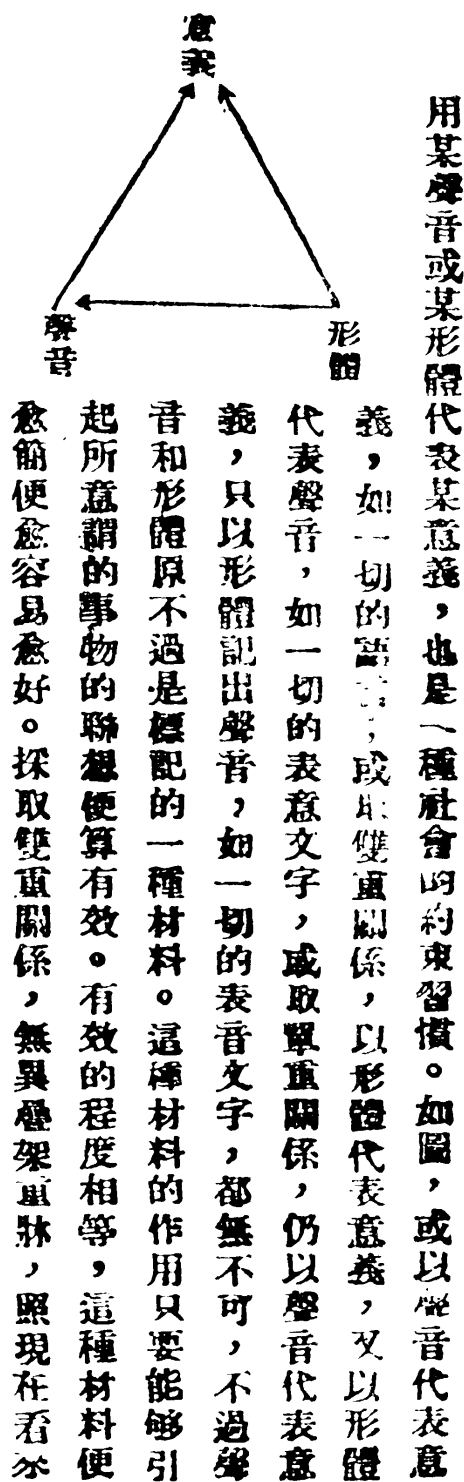 意義
聲音
形體
用某聲音或某形體代表某意義，也是一種社會的約束習慣。如圖，或以聲音代表意
義，如一切的語言；或取雙重關係，以形體代表意義，又以形體
代表聲音，如一切的表意文字，或取單重關係，仍以聲音代表意
義，只以形體記出聲音，如一切的表音文字，都無不可，不過聲
音和形體原不過是標記的一種材料。這種材料的作用只要能够引
起所意謂的事物的聯想便算有效。有效的程度相等，這種材料便
愈簡便愈容易愈好。採取雙重關係，無異疊架重牀，照現在看來